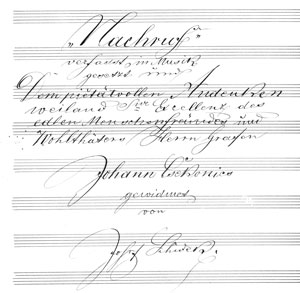 „Nachruf"
verfasst in Musik
gesetzt und
Dem pietätvollen Andenken
weiland Sr Excellenz des
edlen Menschenfreundes und
Wohlthäters Herrn Grafen
Johann Csekonics
gewidmet
von
Josef